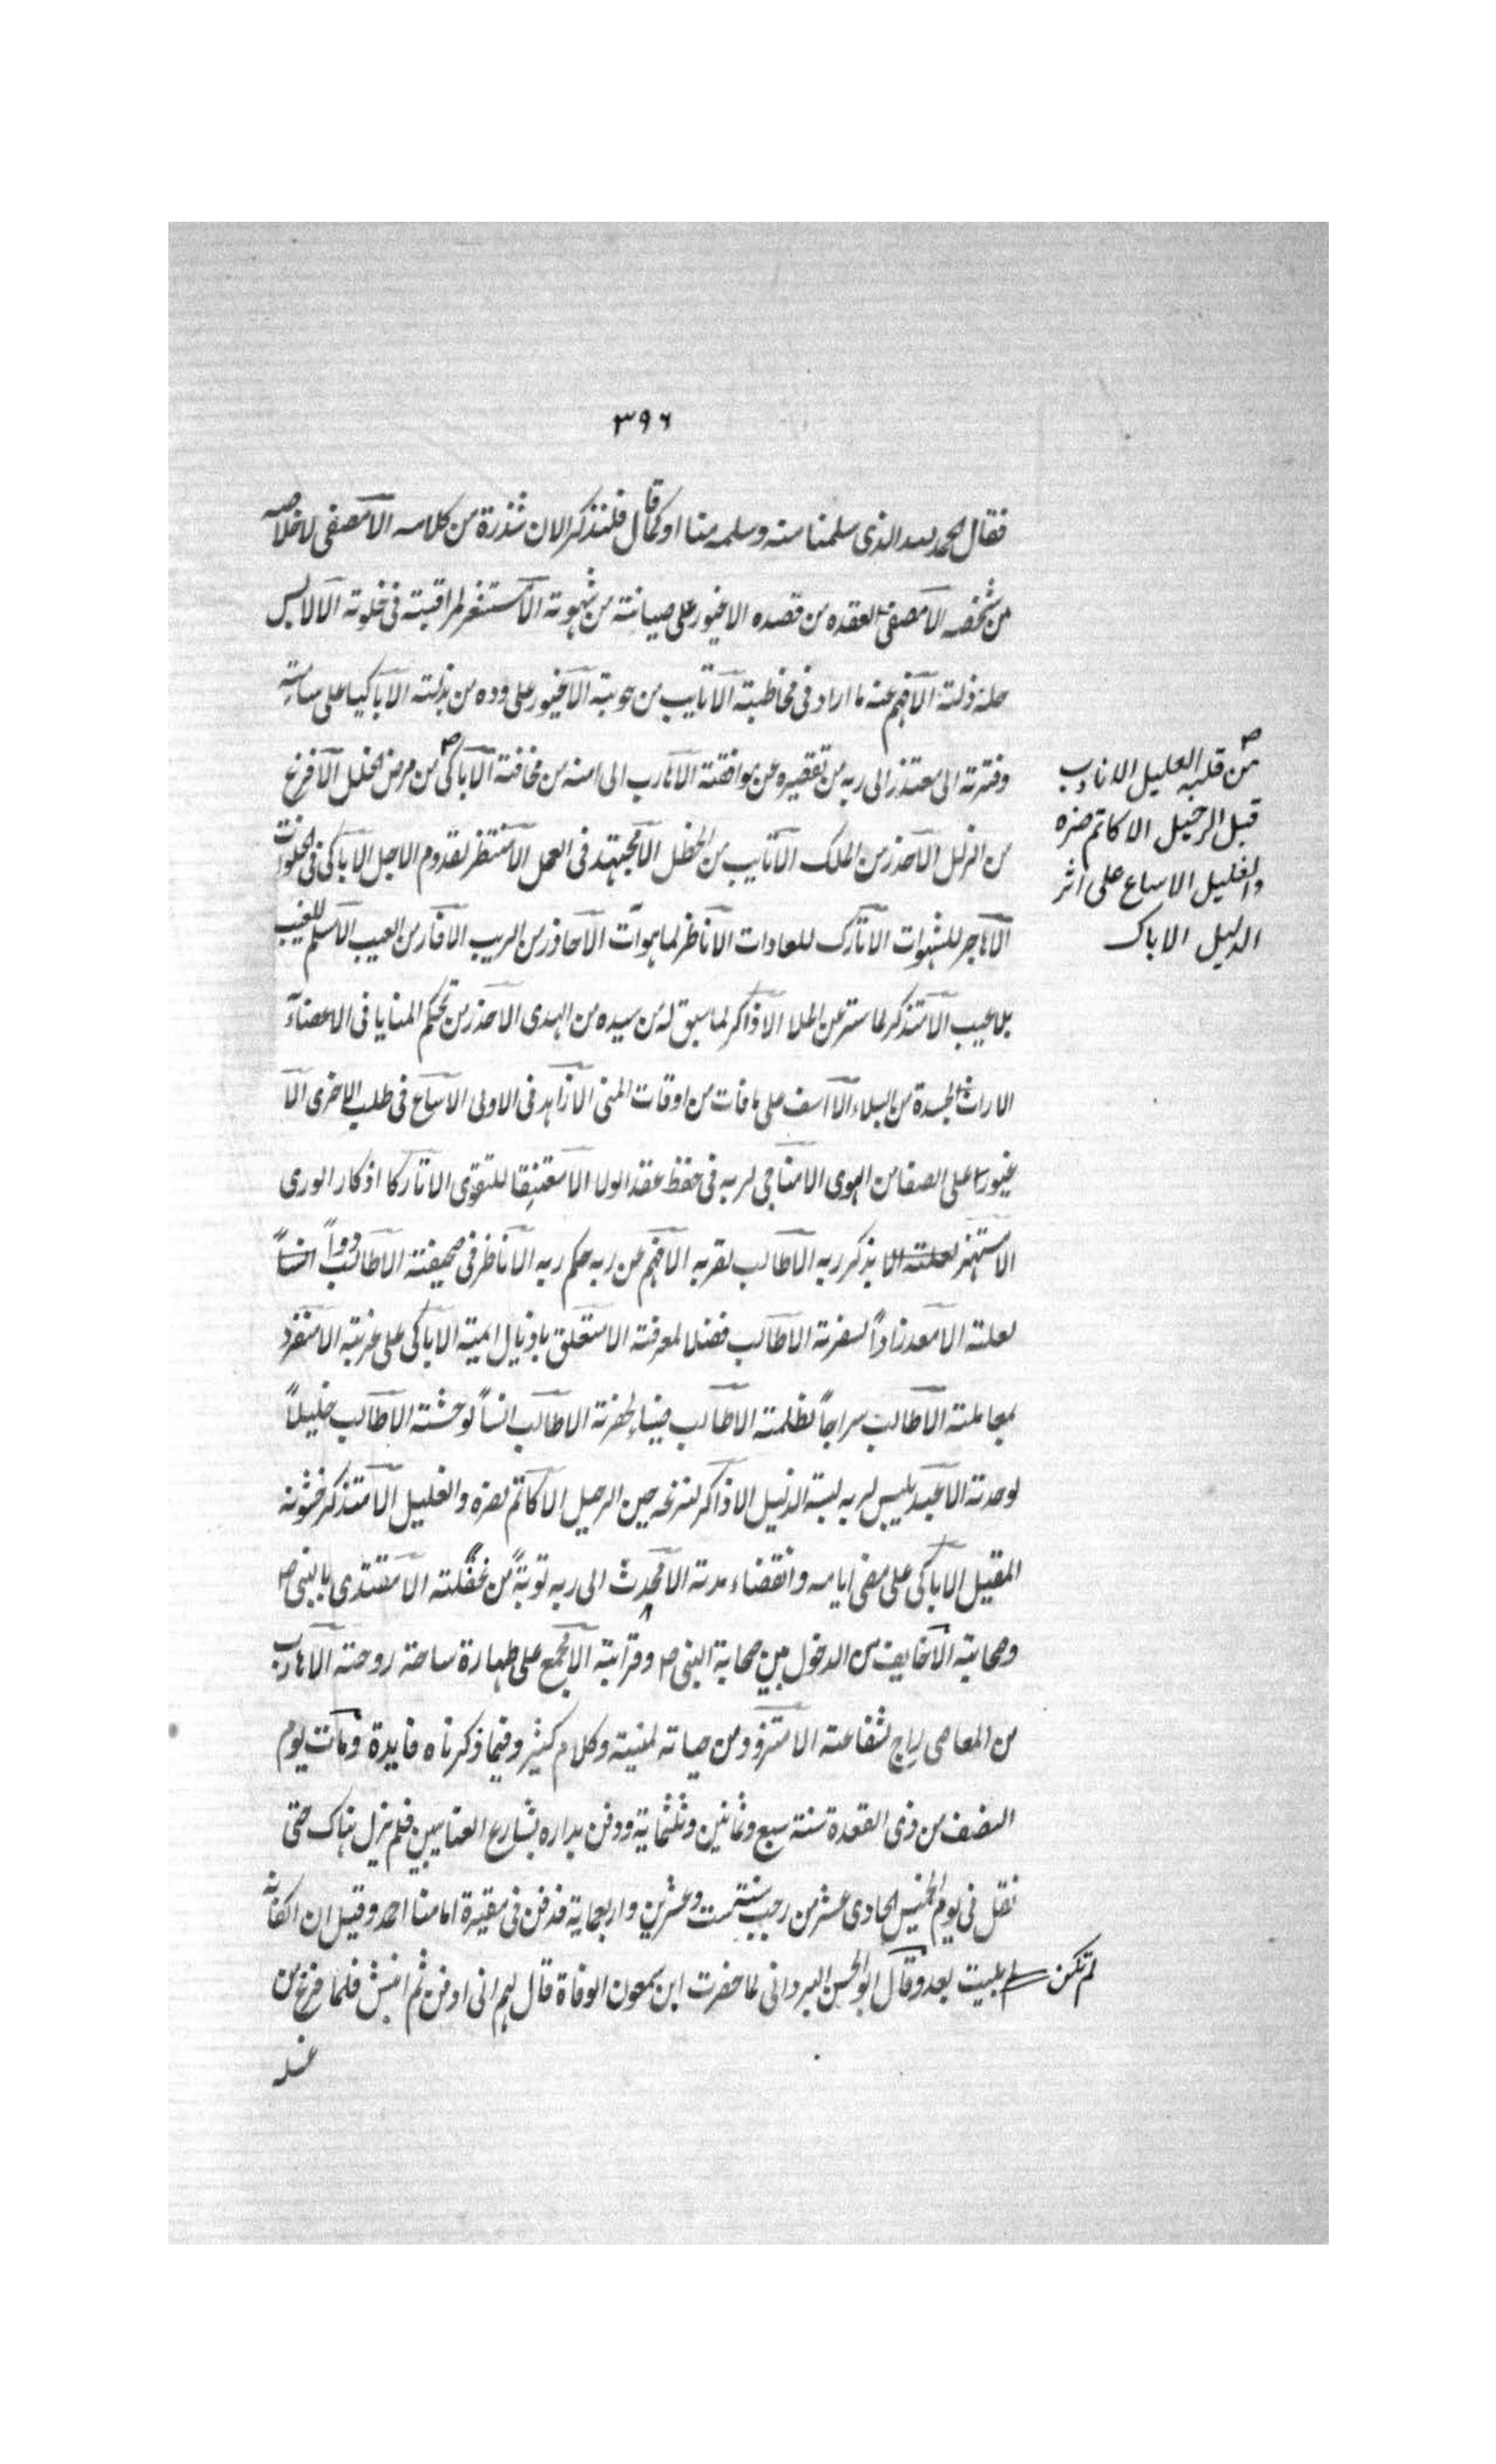 ٣٩٦
فقال الحمد لله الذى سلمنا منه وسلمه منا او كما قال فلنذكر الان شذرة من كلامه الا مصفى لاخلاصه
من شخصه الا مصفى لعقده من قصده الا غيور على صيانته من شهوته الا مستغفر لمراقبته فى خلوته الا لابس
حلة ذلته الا فهم عنه ما اراد فى مخاطبته الا تايب من حوبته الا غيور على وده من بذلته الا باكيا على ساعته
وفترته الى معتذر الى ربه من تقصيره عن موافقته الا هارب الى امنه من مخافته الا باكى من مرض الخلل الا فزع
من قلبه العليل الا نادب
قبل الرحيل الا كاتم ضره
والغليل الا ساع على اثر
الدليل الا باك
من الزلل الا حذر من الملك الا تايب من الخطل الا مجتهد فى العمل الا منتظر لقدوم الاجل الا باكى فى الخلوات
الا هاجر للشهوات الا تارك للعادات الا ناظر لما هو آت الا حاذر من الريب الا فار من العيب الا سلم للغيب
بلا عيب الا متذكر لما ستر عن الملا الا ذاكر لما سبق له من سيده من الهدى الا حذر من تحكم المنايا فى الاعضاء
الا راث لجسده من البلاء الا آسف على ما فات من اوقات المنى الا زاهد فى الاولى الا ساع فى طلب الاخرى الا
غيورا على الصفا من الهوى الا مناجى لربه فى حفظ عقد الولا الا معتنقا للتقوى الا تاركا اذكار الورى
الا مستهتر بذكر ربه الا طالب لقربه الا فهم عن ربه حكم ربه الا ناظر فى صحيفته الا طالب دواً
لعلته الا معد زاداً لسفرته الا طالب فضلا لمعرفته الا متعلق باذيال امنيته الا باكى على غربته الا منفرد
بمعاملته الا طالب سراجاً لظلمته الا طالب ضياء لحفرته الا طالب انساً لوحشته الا طالب خليلاً
لوحدته الا عبد يلبس لربه لبسة الذليل الا ذاكر لنزعه حين الرحيل الا كاتم لضره والغليل الا متذكر خشونة
المقيل الا باكى على مضى ايامه وانقضاء مدته الا محدث الى ربه توبةً من غفلته الا مقتدى بالنبى ص
وصحابته الا خايف من الدخول بين صحابة النبى ص وقرابته الا مجمع على طهارة ساحة روحته الا هارب
من المعاصى لراج لشفاعته الا متزود من حياته لمنيته وكلام كثير وفيما ذكرناه فايدة ومات يوم
النصف من ذى القعدة سنة سبع وثمانين وثلثماية ودفن بداره بشارع العتابيين فلم يزل هناك حتى
نقل فى يوم الخميس الحادى عشر من رجب سنة ست وعشرين واربعماية فدفن فى مقبرة امامنا احمد وقيل ان اكفانه
لم تكن بليت بعد وقال ابو الحسن البروانى لما حضرت ابن سمعون الوفاة قال لهم انى ادفن ثم انبش فلما فرغ من
غسله